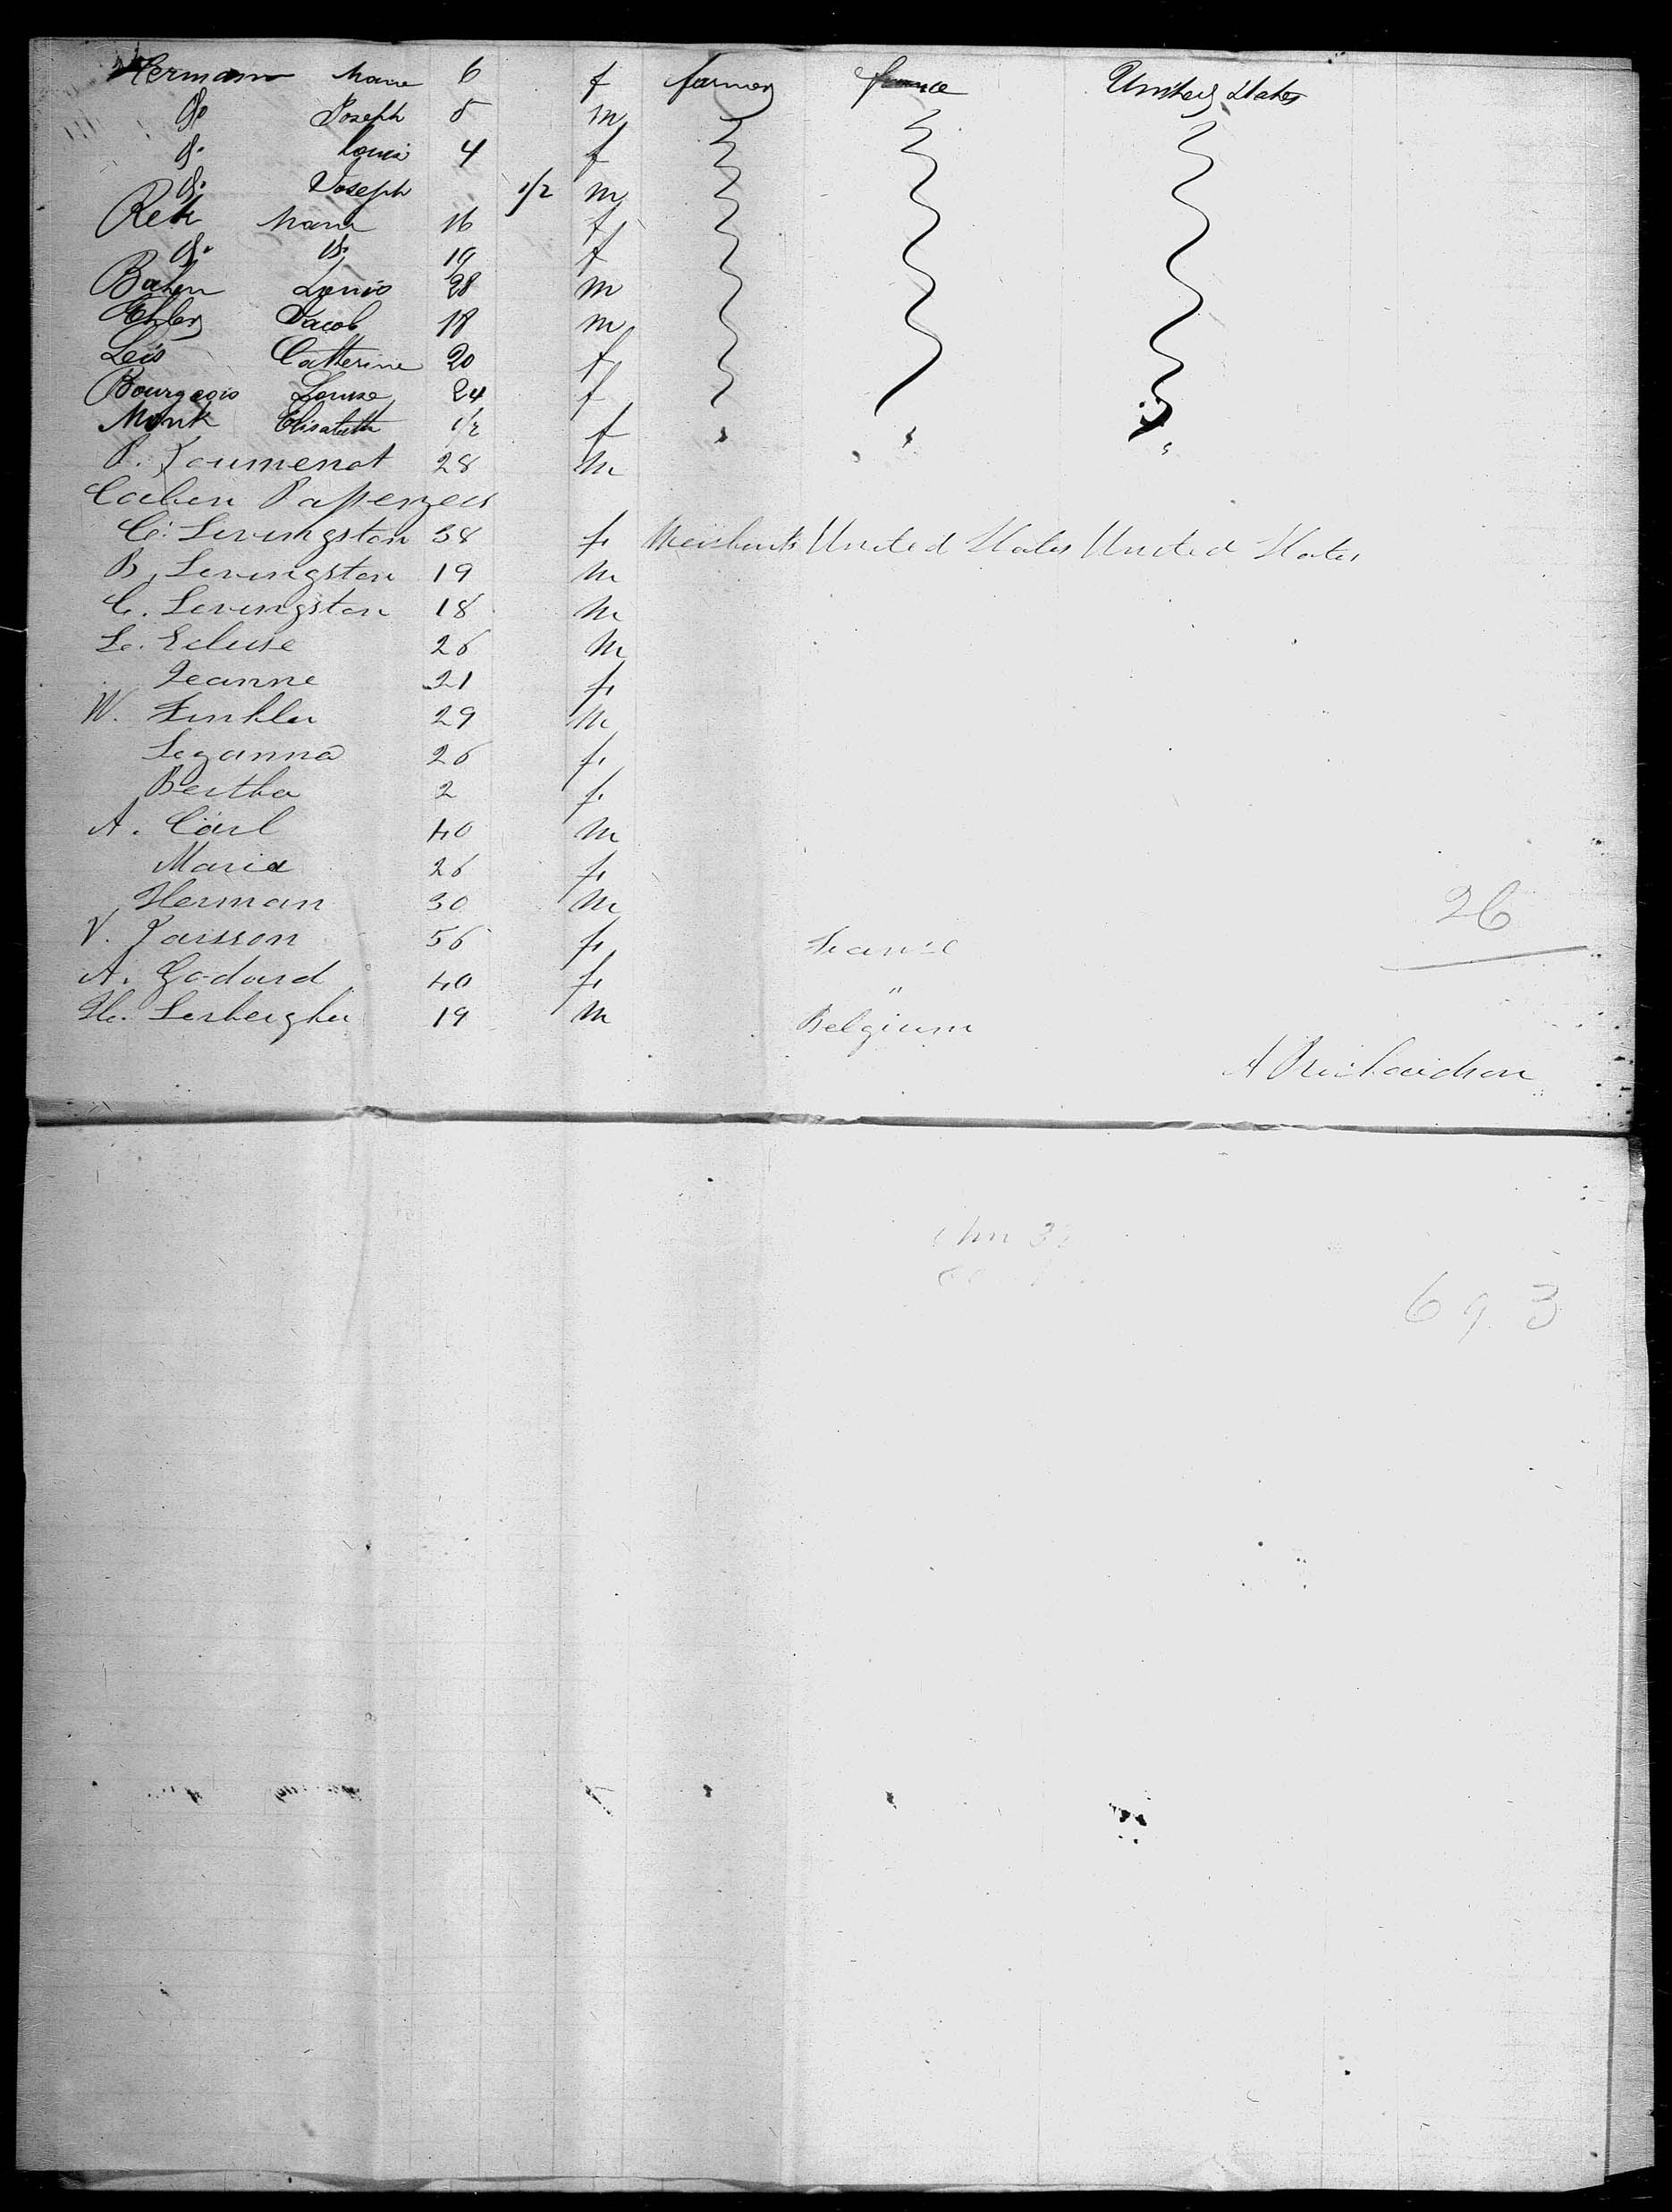 Hermann Marie 6 f farmer france United States
do Joseph 5 m
do Louis 4 f
do Joseph 1/2 m
Reh Marie 16 f
do do 19 f
Louis 28 m
Ehler Jacob 18 m
Leis Catterine 20 f
Bourgeois Louise 24 f
Monk Elisabeth 1/2 f " " "
P. Joumenot 28 m
Cabin Passengers
C. Livingston 38 f Merchants United States United States
B. Livingston 19 m
C. Livingston 18 m
L. Ecluse 26 m
Jeanne 21 f
W. Finkler 29 m
Sezanna 26 f
Bertha 2 f
A. Cärl 40 m
Maria 26 f
Herman 30 m
26
V. Jaisson 56 f France
A. Godard 40 f "
He. Lerberghe 19 m Belgium
A Richardson
693